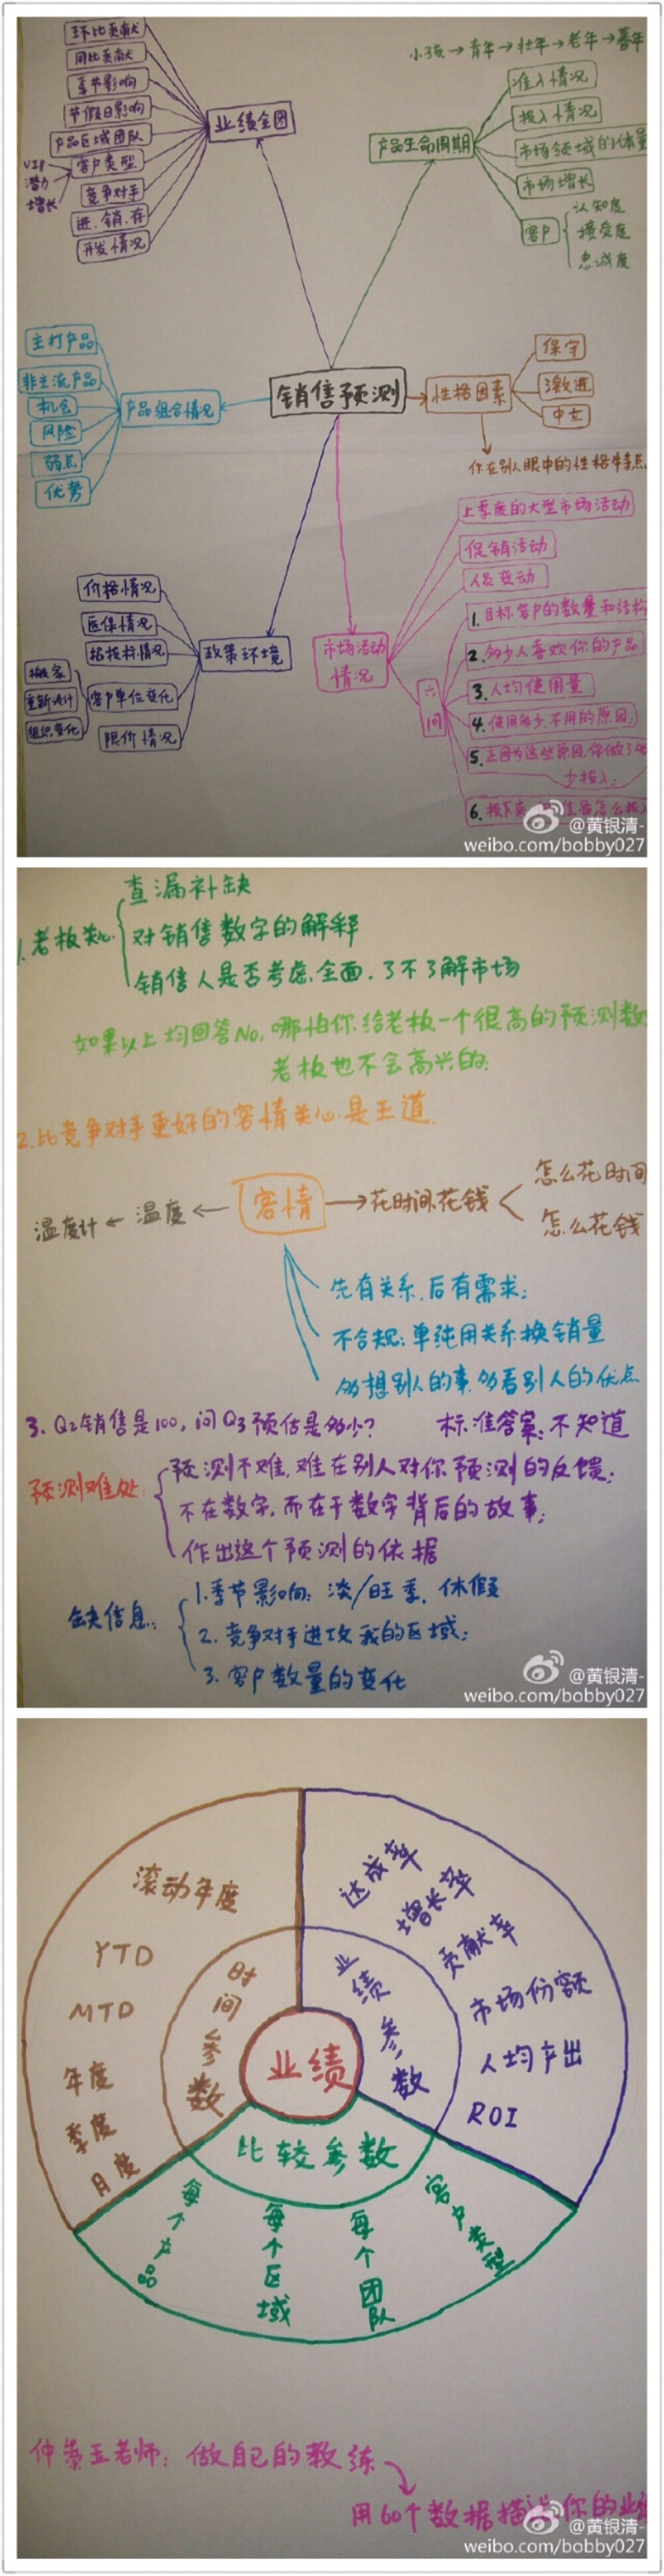 环比贡献
同比贡献
季节影响
节假日影响
产品区域团队
VIP
潜力
增长
客户类型
竞争对手
进、销、存
开发情况
业绩全图
小孩→青年→壮年→老年→暮年
产品生命周期
准入情况
投入情况
市场领域的体量
市场增长
客户
认知度
接受度
忠诚度
主打产品
非主流产品
机会
风险
弱点
优势
产品组合情况
销售预测
性格因素
保守
激进
中立
你在别人眼中的性格特点
价格情况
医保情况
招投标情况
搬家
重新设计
组织变化
客户单位变化
限价情况
政策环境
市场活动
情况
上季度的大型市场活动
促销活动
人员变动
六
问
1.目标客户的数量和结构
2.多少人喜欢你的产品
3.人均使用量
4.使用多少,不用的原因;
5.正因为这些原因,你做了
少投入;
6.接下来
@黄银清-
weibo.com/bobby027
1.老板关心
查漏补缺
对销售数字的解释
销售人是否考虑全面,了不了解市场
如果以上均回答No,哪怕你给老板一个很高的预测数
老板也不会高兴的;
2.比竞争对手更好的客情关心是王道.
温度计←温度←客情→花时间花钱
怎么花时间
怎么花钱
先有关系,后有需求;
不合规:单纯用关系换销量
多想别人的事,多看别人的优点
3. Q2销售是100,问Q3预估是多少? 标准答案:不知道
预测难处
预测不难,难在别人对你预测的反馈;
不在数字,而在于数字背后的故事;
作出这个预测的依据
缺信息:
1.季节影响:淡/旺季,休假
2. 竞争对手进攻我的区域;
3. 客户数量的变化
@黄银清-
weibo.com/bobby027
滚动年度
YTD
MTD
年度
季度
月度
时间参数
达成率
增长率
贡献率
市场份额
人均产出
ROI
业绩参数
业绩
比较参数
每个产品
每个区域
每个团队
客户类型
仲崇玉老师:做自己的教练
用60个数据描述你的业
@黄银清-
weibo.com/bobby027